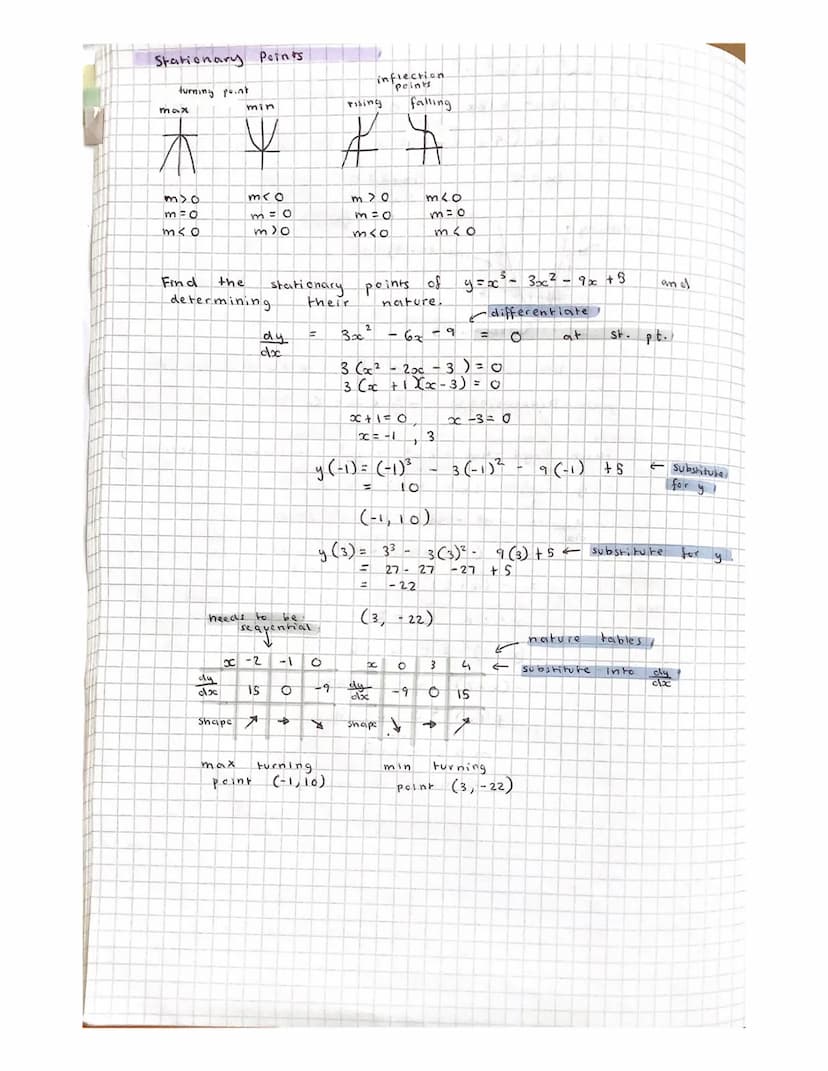 Stationary Points
turning point
inflection points
max min rising falling
m>0 m<0 m>0 m<0
m=0 m=0 m=0 m=0
m<0 m>0 m<0 m<0
Find the stationary points of y=x³- 3x² - 9x +5 and
determining their nature.
differentiate
dy/dx = 3x² - 6x - 9 = 0 at st. pt.
3(x² - 2x - 3) = 0
3(x +1)(x-3) = 0
x+1=0, x-3=0
x=-1, 3
y(-1) = (-1)³ - 3(-1)² - 9(-1) +5 ← substitute for y
= 10
(-1,10)
y(3)= 3³ - 3(3)² - 9(3)+5 ← substitute for y
= 27- 27 -27 +5
= -22
(3, -22)
needs to be
sequential
nature tables
x -2 -1 0 x 0 3 4 ← substitute into dy/dx
dy/dx 15 0 -9 dy/dx -9 0 15
shape ↗ → ↘ shape ↘ → ↗
max turning min turning
point (-1,10) point (3,-22)